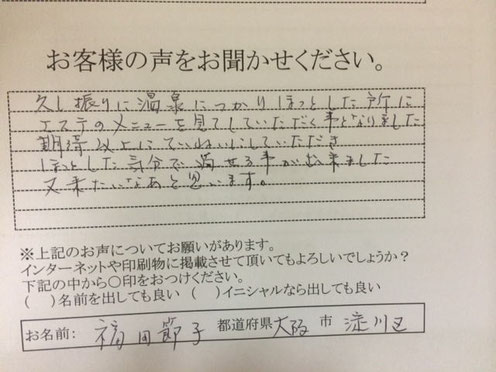 お客様の声をお聞かせください。
久し振りに温泉につかりほっとした所に
エステのメニューを見てしていただく事となりました
期待以上にていねいにしていただき
ほっとした気分で過せる事が出来ました
又来たいなあと思います。
※上記のお声についてお願いがあります。
インターネットや印刷物に掲載させて頂いてもよろしいでしょうか?
下記の中から〇印をおつけください。
( )名前を出しても良い ( )イニシャルなら出しても良い
お名前: 福田節子 都道府県 大阪 市 淀川区